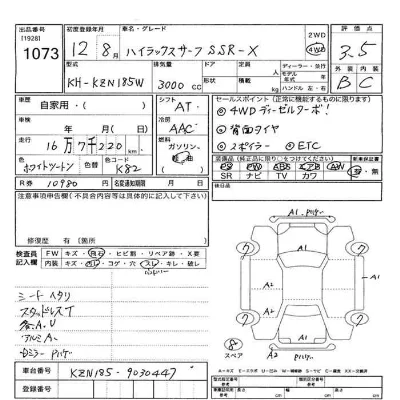 出品番号 [1928] 1073
初度登録年月 12年 8月
車名・グレード ハイラックスサーフ SSR-X
2WD 4WD
評価点 3.5
型式 KH-KZN185W
排気量 3000 cc
ドア 形状
定員 人
積載 kg
ディーラー・並行
モデル年式 年
ハンドル 左・右
外装 B
内装 C
車歴 自家用・( )
シフト AT
セールスポイント (正常に機能するものに限ります)
① 4WDディーゼルターボ!
② 背面タイヤ
③ スポイラー ④ ETC
車検 年 月( 日)
冷房 AAC
走行 16万7千220 km
燃料 ガソリン 軽油
色 ホワイトツートン
色替
カラーコード K82
装備品 (純正品に限り○をつけてください)
PS PW ABS エアB AW
SR ナビ TV カワ
新車保証書 有・無
R券 10980 円
名変通知期限 月 日
検分品
注意事項申告欄(不具合内容等は具体的に記入して下さい)
修復歴 有 (箇所 )
検査員記入欄
FW キズ・飛石・ヒビ割・リペア跡・X要
内装 キズ・凹・コゲ・穴・スレ・キレ・破レ
シートヘタリ
スタッドレスT
各A.U
アルミA
Dミラー
A1
A1
A2
A2
A1
A1
A2
7 7 7 7
8 スペア
車台番号 KZN185-9030447
登録番号
型式指定番号
類別区分番号